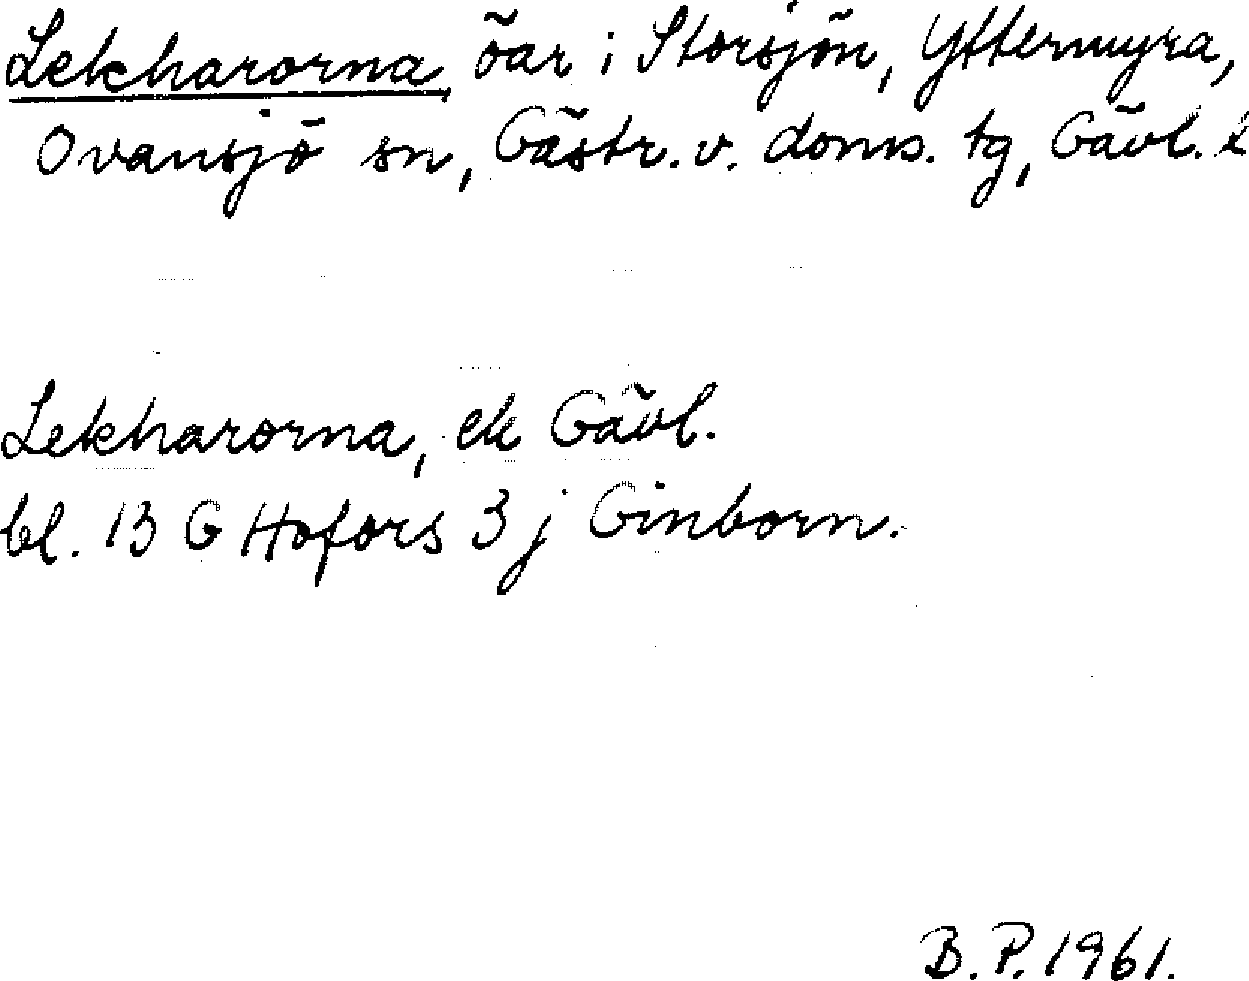 Lekharorna, öar i Storsjön, Yttermyra,
Ovansjö sn, Gästr. v. doms. tg, Gävl. l
Lekharorna, ek Gävl.
bl. 13 G Hofors 3 j Ginborn.
B. P. 1961.